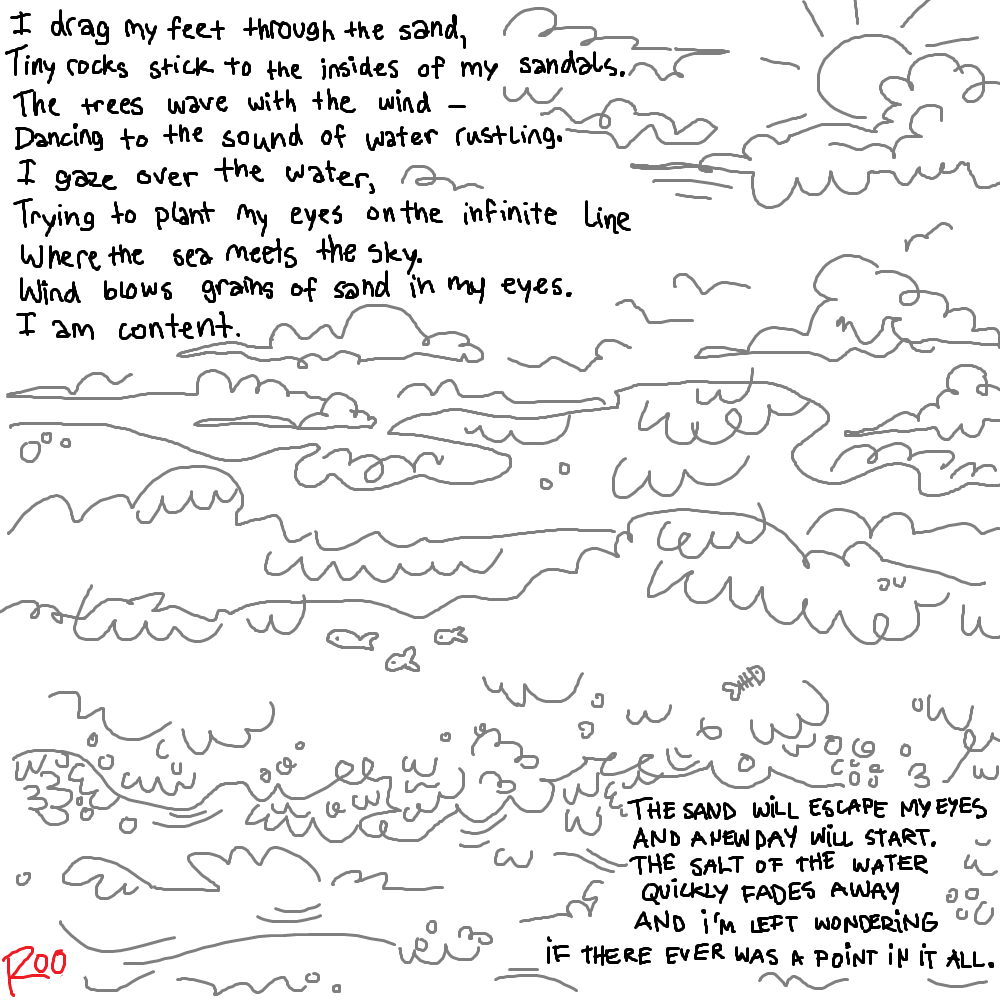 I drag my feet through the sand,
Tiny rocks stick to the insides of my sandals.
The trees wave with the wind –
Dancing to the sound of water rustling.
I gaze over the water,
Trying to plant my eyes on the infinite line
Where the sea meets the sky.
Wind blows grains of sand in my eyes.
I am content.
THE SAND WILL ESCAPE MY EYES
AND A NEW DAY WILL START.
THE SALT OF THE WATER
QUICKLY FADES AWAY
AND i'M LEFT WONDERING
iF THERE EVER WAS A POINT IN IT ALL.
ROO